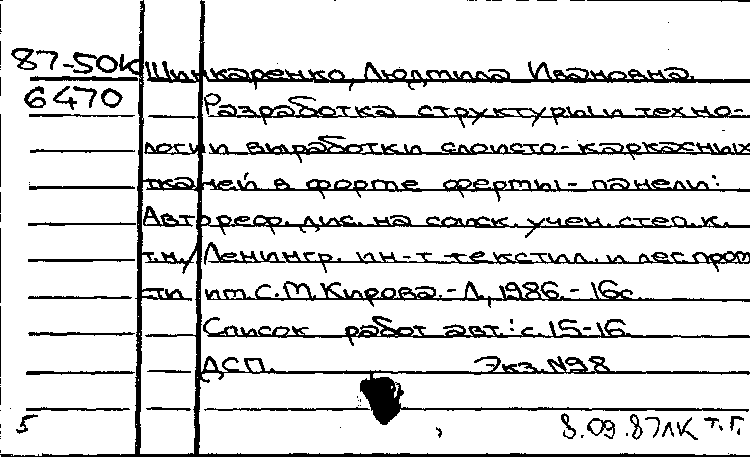 87-50К Шинкаренко, Людмила Ивановна.
6470 Разработка структуры и техно-
логии выработки слоисто-каркасных
тканей в форме фермы-панели:
Автореф. дис. на соиск. учен. степ. к.
т.н./ Ленингр. ин-т текстил. и лег. пром-
ти им. С.М. Кирова.-Л., 1986.-16с.
Список работ авт.: с. 15-16.
ДСП. Экз. №98
5 8.09.87 ЛК Т.Г.